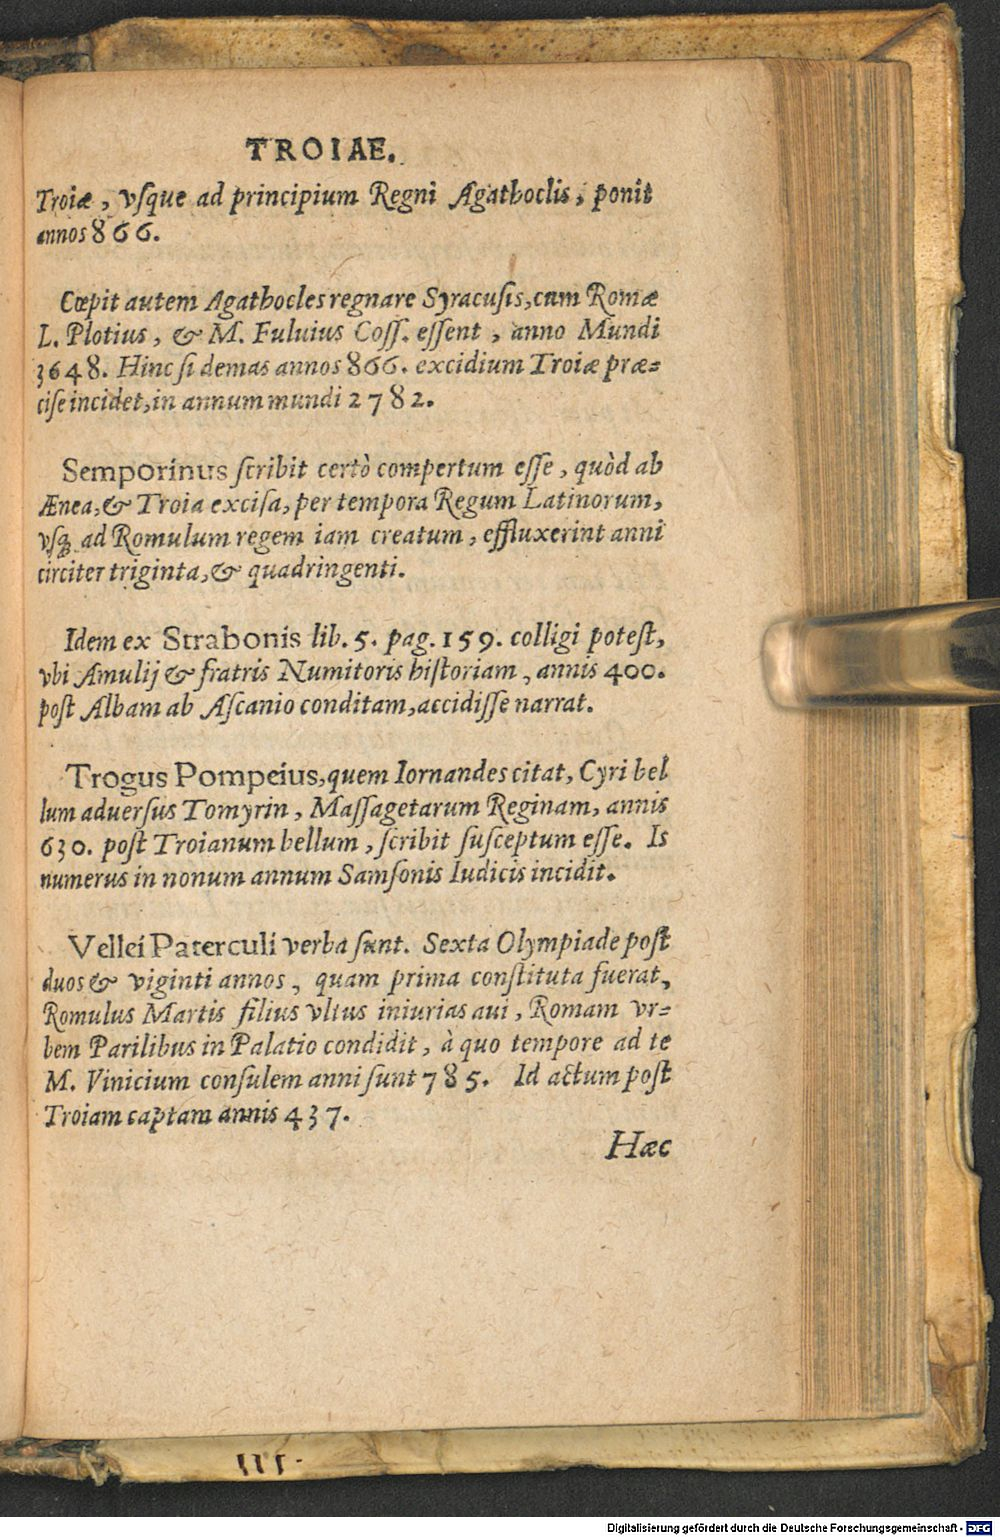 TROIAE.
Troiæ, vſque ad principium Regni Agathoclis, ponit
annos 866.
Cœpit autem Agathocles regnare Syracuſis, cum Romæ
L. Plotius, & M. Fuluius Coſſ. eſſent, anno Mundi
3648. Hinc ſi demas annos 866. excidium Troiæ præ=
ciſe incidet, in annum mundi 2782.
Semporinus ſcribit certò compertum eſſe, quòd ab
Ænea, & Troia exciſa, per tempora Regum Latinorum,
vſq; ad Romulum regem iam creatum, effluxerint anni
circiter triginta, & quadringenti.
Idem ex Strabonis lib. 5. pag. 159. colligi poteſt,
vbi Amulij & fratris Numitoris hiſtoriam, annis 400.
poſt Albam ab Aſcanio conditam, accidiſſe narrat.
Trogus Pompeius, quem Iornandes citat, Cyri bel
lum aduerſus Tomyrin, Maſſagetarum Reginam, annis
630. poſt Troianum bellum, ſcribit ſuſceptum eſſe. Is
numerus in nonum annum Samſonis Iudicis incidit.
Vellei Paterculi verba ſunt. Sexta Olympiade poſt
duos & viginti annos, quam prima conſtituta fuerat,
Romulus Martis filius vltus iniurias aui, Romam vr=
bem Parilibus in Palatio condidit, à quo tempore ad te
M. Vinicium conſulem anni ſunt 785. Id actum poſt
Troiam captam annis 437.
Hæc
Digitalisierung gefördert durch die Deutsche Forschungsgemeinschaft - DFG